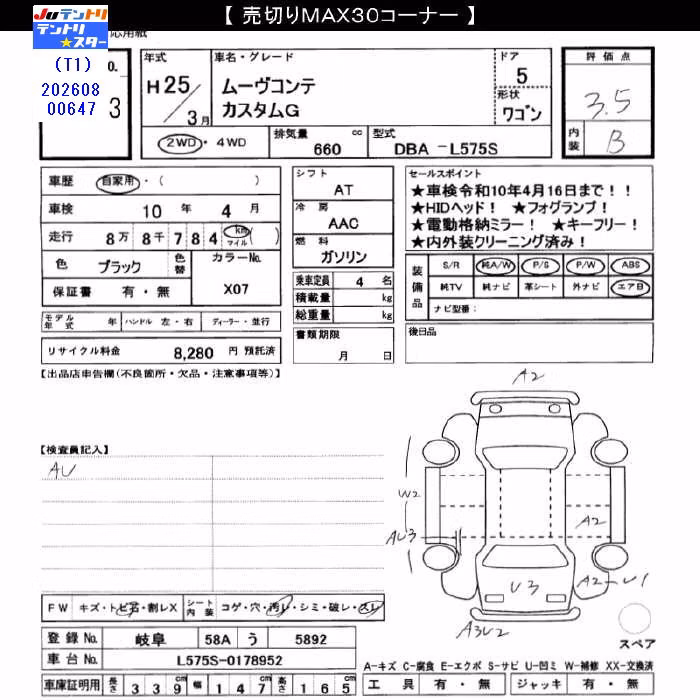 【 売切りMAX30コーナー 】
JUテントリ
テントリ★スター
応用紙
(T1) o.
202608
00647 3
年式 H25/3月
車名・グレード ムーヴコンテ カスタムG
ドア 5
形状 ワゴン
評価点 3.5
内装 B
2WD・4WD 排気量 660 cc 型式 DBA -L575S
車歴 自家用・( )
車検 10 年 4 月
走行 8万 8千 7 8 4 km マイル ( )
色 ブラック 色替 カラーNo. X07
保証書 有・無
シフト AT
冷房 AAC
燃料 ガソリン
乗車定員 4 名
積載量 kg
総重量 kg
書類期限 月 日
セールスポイント
★車検令和10年4月16日まで!!
★HIDヘッド! ★フォグランプ!
★電動格納ミラー! ★キーフリー!
★内外装クリーニング済み!
装備品 S/R 純A/W P/S P/W ABS
純TV 純ナビ 革シート 外ナビ エアB
ナビ型番:
後日品
モデル年式 年 ハンドル 左・右 ディーラー・並行
リサイクル料金 8,280 円 預託済
【出品店申告欄(不良箇所・欠品・注意事項等)】
【検査員記入】
AU
A2
W2
AU3
A2
A2-U1
U3
A3U2
スペア
FW キズ・トビ石・割レX シート内装 コゲ・穴・汚レ・シミ・破レ・スレ
登録No. 岐阜 58A う 5892
車台No. L575S-0178952
車庫証明用 長さ 3 3 9 cm 幅 1 4 7 cm 高さ 1 6 5 cm
A-キズ C-腐食 E-エクボ S-サビ U-凹ミ W-補修 XX-交換済
工具 有・無 ジャッキ 有・無